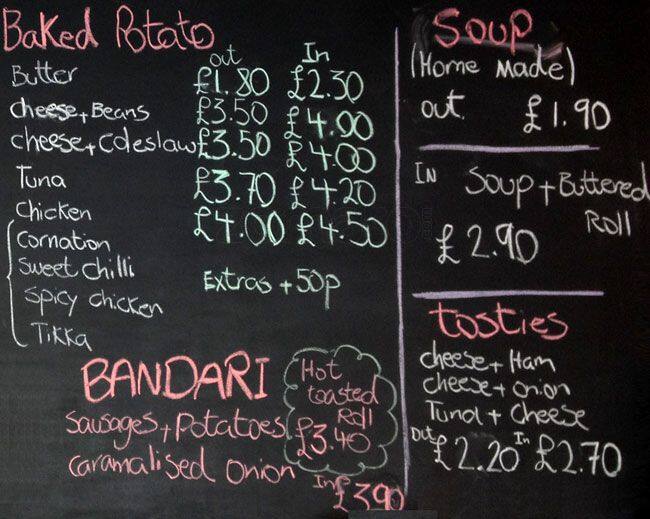 Baked Potato
out In
Butter £1.80 £2.30
cheese+Beans £3.50 £4.00
cheese+Coleslaw £3.50 £4.00
Tuna £3.70 £4.20
Chicken £4.00 £4.50
Cornation
Sweet chilli
Spicy chicken
Tikka
Extras + 50p
BANDARI
sausages+potatoes
caramalised onion
Hot
toasted
Roll
£3.40
In £3.90
Soup
(Home Made)
out. £1.90
In Soup + Buttered
Roll
£2.90
tosties
cheese + Ham
cheese + onion
Tuna + Cheese
Out £2.20 In £2.70